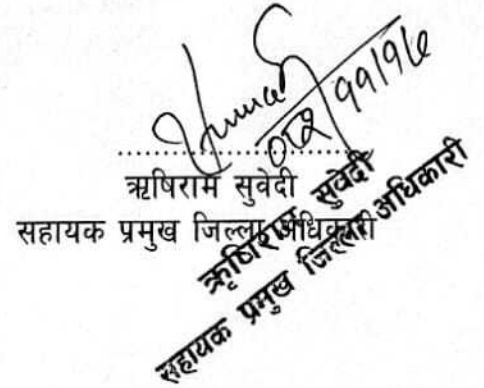 ऋषिराम सुवेदी
सहायक प्रमुख जिल्ला अधिकारी
ऋषिराम सुवेदी
सहायक प्रमुख जिल्ला अधिकारी